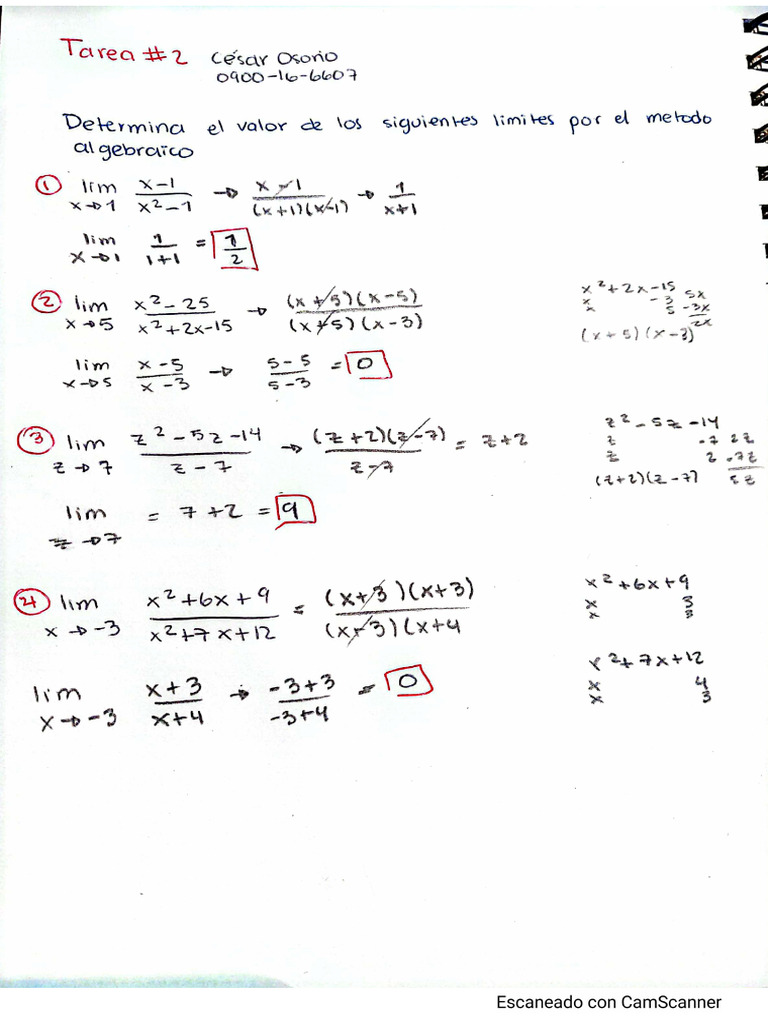 Tarea #2 César Osorio
0900-16-6607
Determina el valor de los siguientes limites por el metodo
algebraico
① lim x→1 (x-1)/(x²-1) → (x-1)/((x+1)(x-1)) → 1/(x+1)
lim x→1 1/(1+1) = 1/2
② lim x→5 (x²-25)/(x²+2x-15) → ((x+5)(x-5))/((x+5)(x-3))
lim x→5 (x-5)/(x-3) → (5-5)/(5-3) = 0
x²+2x-15
x -3 5x
x 5 -3x
2x
(x+5)(x-3)
③ lim z→7 (z²-5z-14)/(z-7) → ((z+2)(z-7))/(z-7) = z+2
lim z→7 = 7+2 = 9
z²-5z-14
z -7 2z
z 2 -7z
5z
(z+2)(z-7)
④ lim x→-3 (x²+6x+9)/(x²+7x+12) = ((x+3)(x+3))/((x-3)(x+4
lim x→-3 (x+3)/(x+4) → (-3+3)/(-3+4) = 0
x²+6x+9
x 3
x 3
x²+7x+12
x 4
x 3
Escaneado con CamScanner